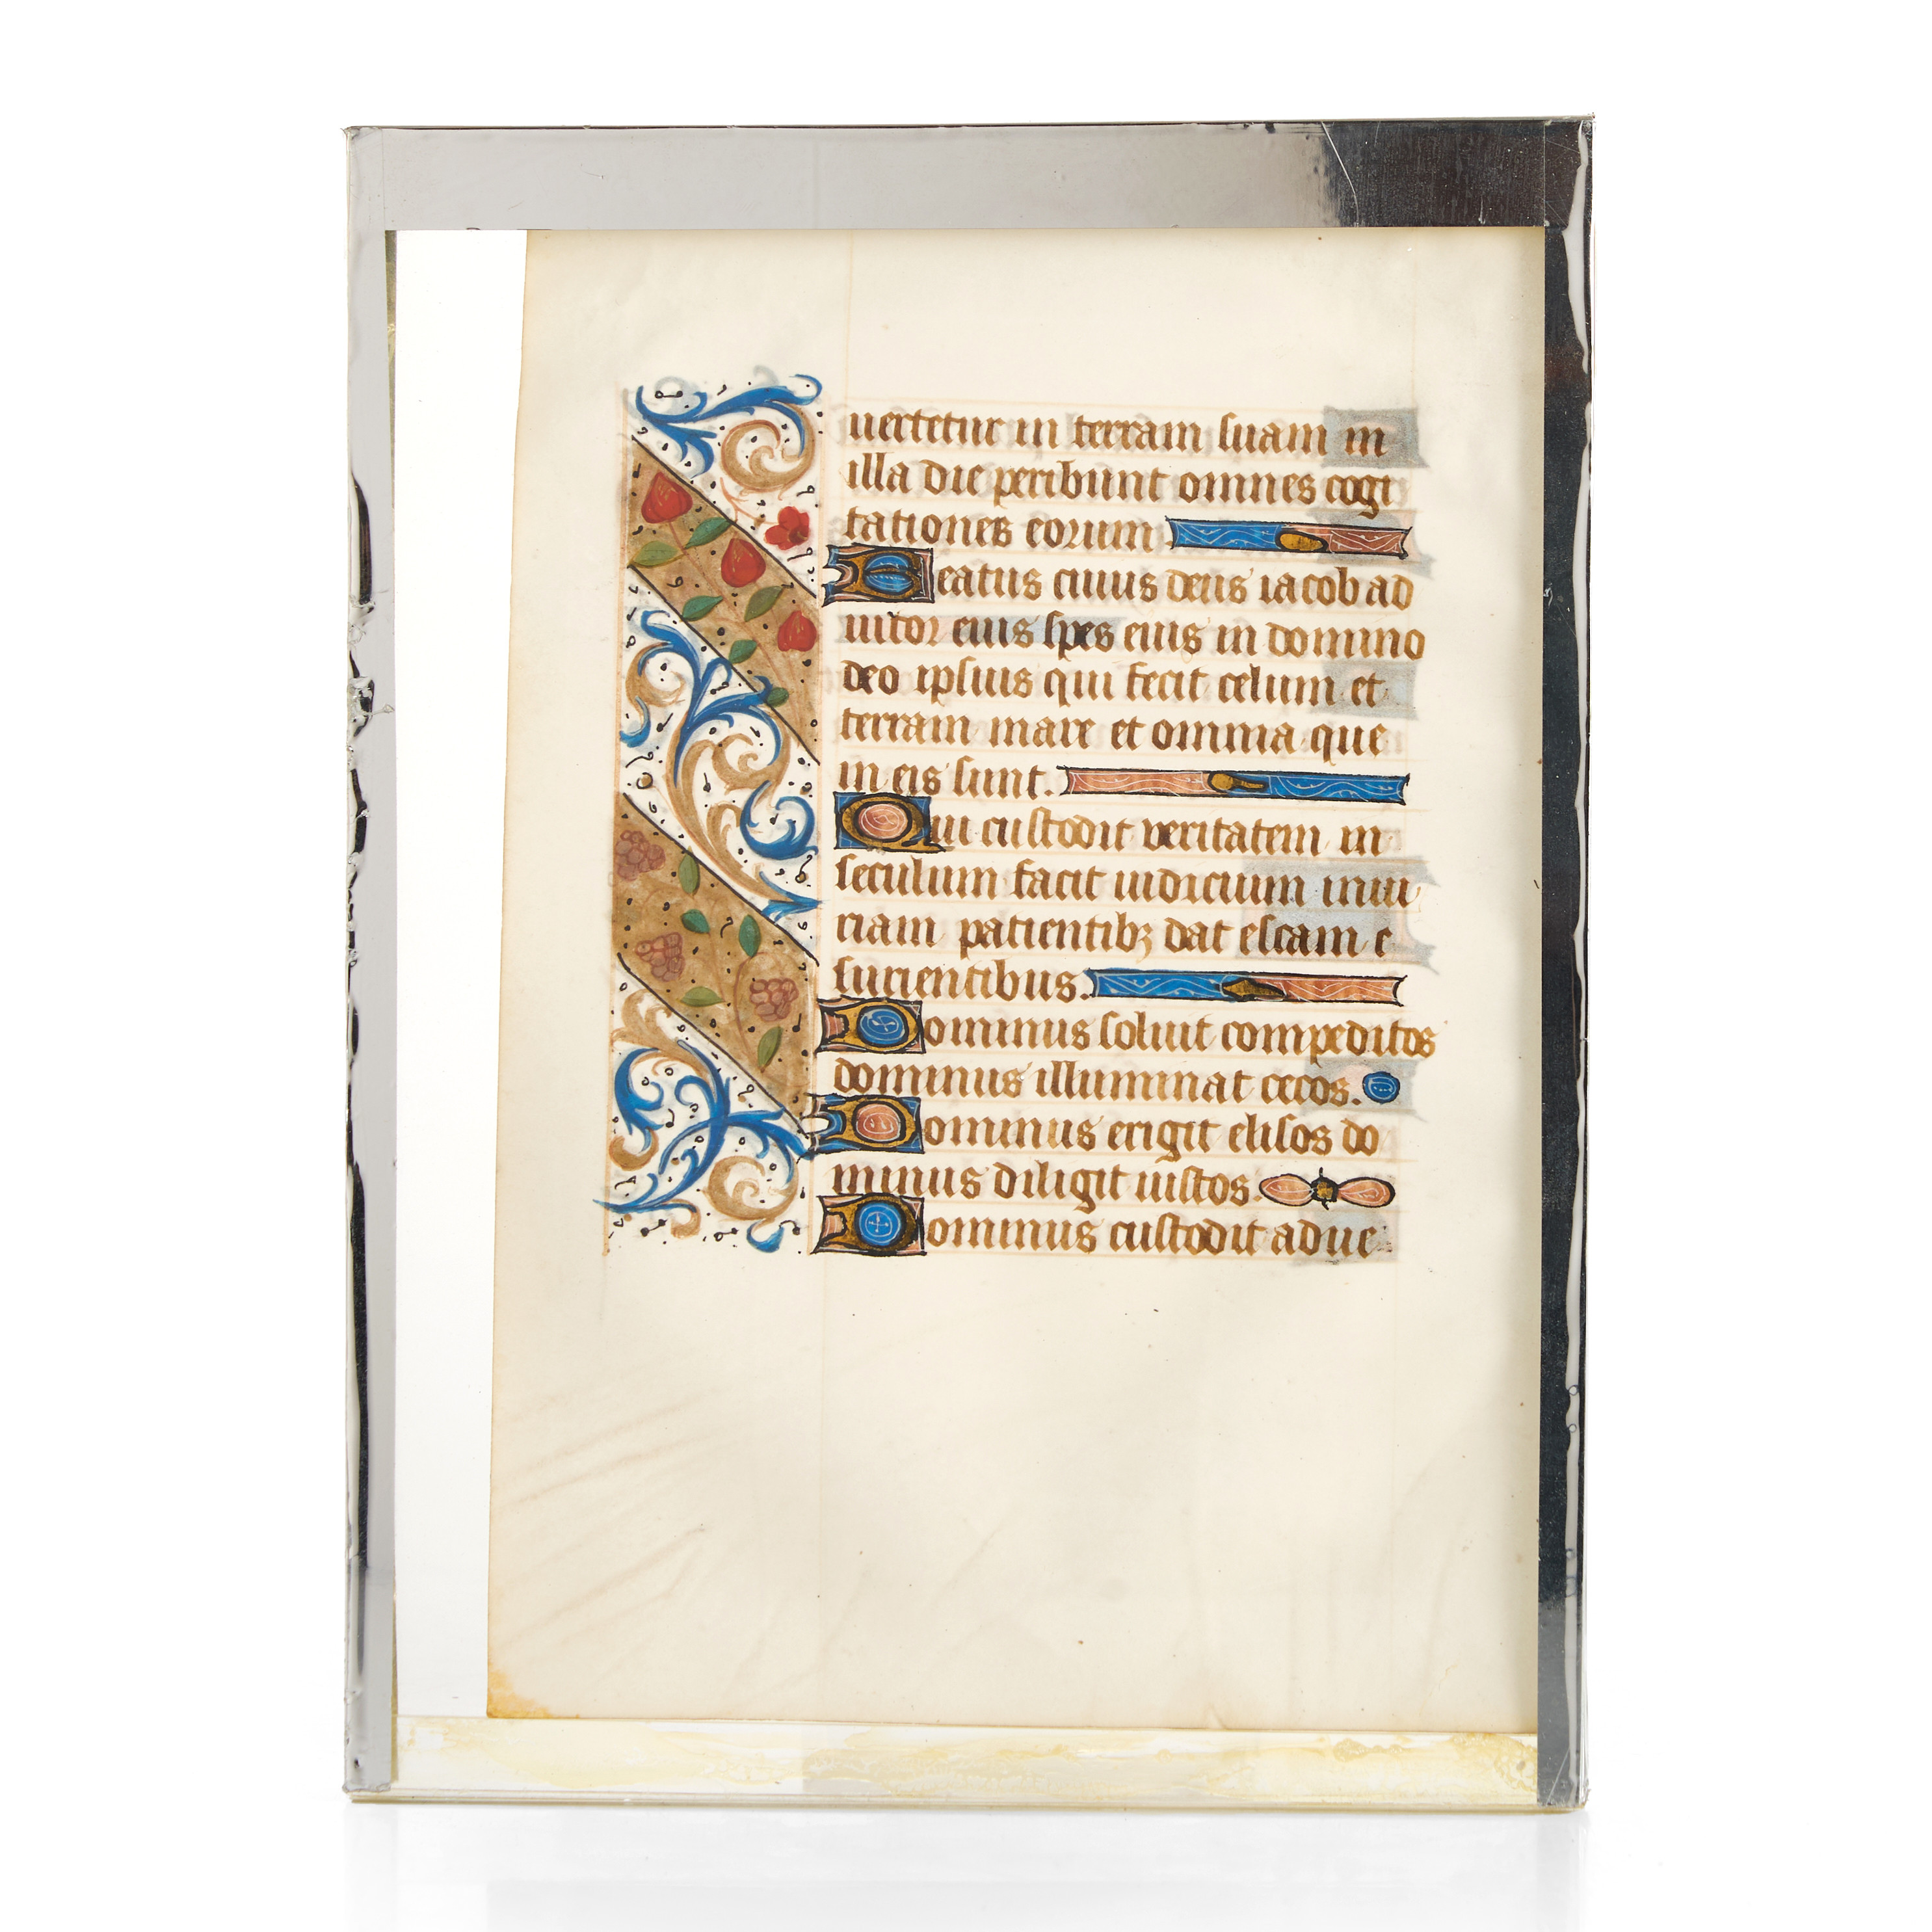 uertetur in terram suam in
illa die peribunt omnes cogi
tationes eorum
Beatus cuius deus iacob ad
iutor eius spes eius in domino
deo ipsius qui fecit celum et
terram mare et omnia que
in eis sunt.
Qui custodit veritatem in
seculum facit iudicium iniu
riam patientibꝫ dat escam e
surientibus.
Dominus soluit compeditos
dominus illuminat cecos.
Dominus erigit elisos do
minus diligit iustos.
Dominus custodit adue